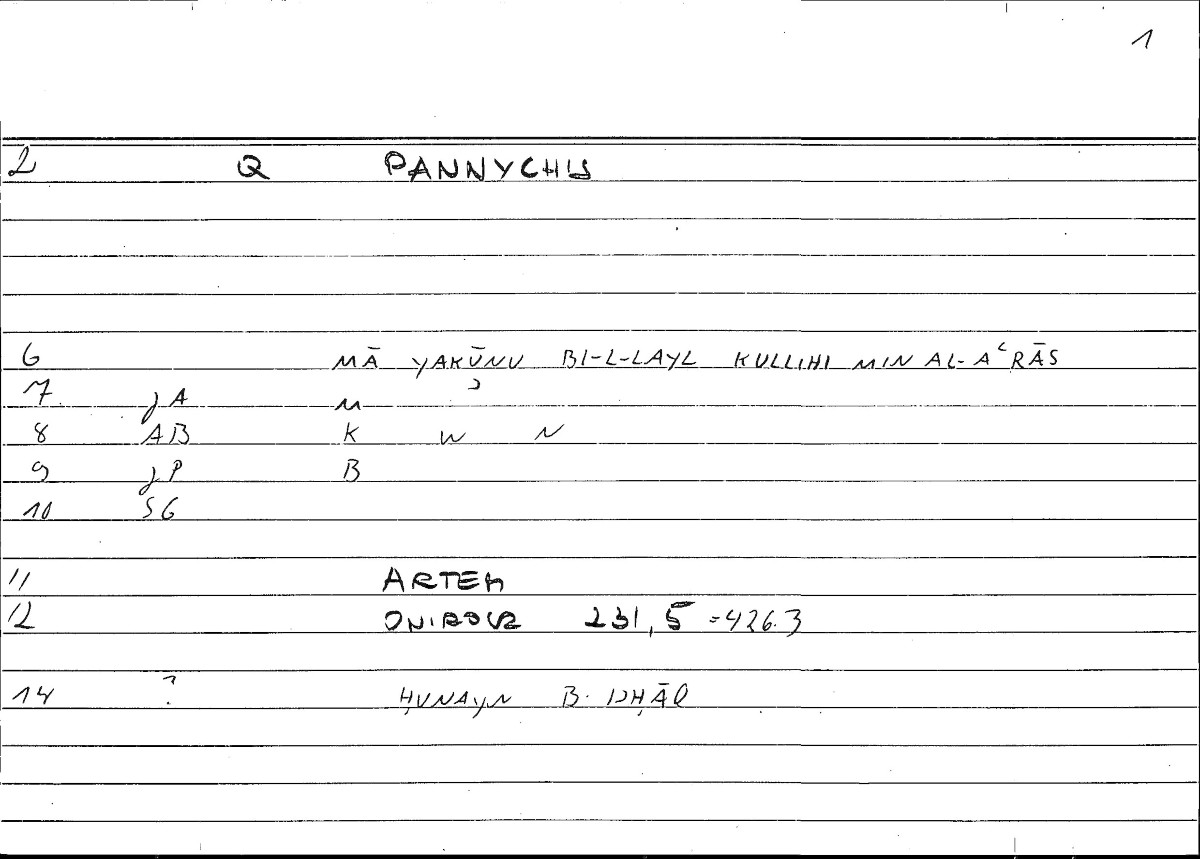 1
2 Q PANNYCHIS
6 MĀ YAKŪNU BI-L-LAYL KULLIHI MIN AL-AʿRĀS
7 JA M ʾ
8 AB K W N
9 JP B
10 SG
11 ARTEM
12 ONIROCR 231,5 = 426.3
14 ? ḤUNAYN B. ISḤĀQ